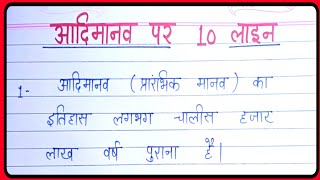 आदिमानव पर 10 लाइन
1- आदिमानव ( प्रारंभिक मानव ) का
इतिहास लगभग चालीस हजार
लाख वर्ष पुराना है।